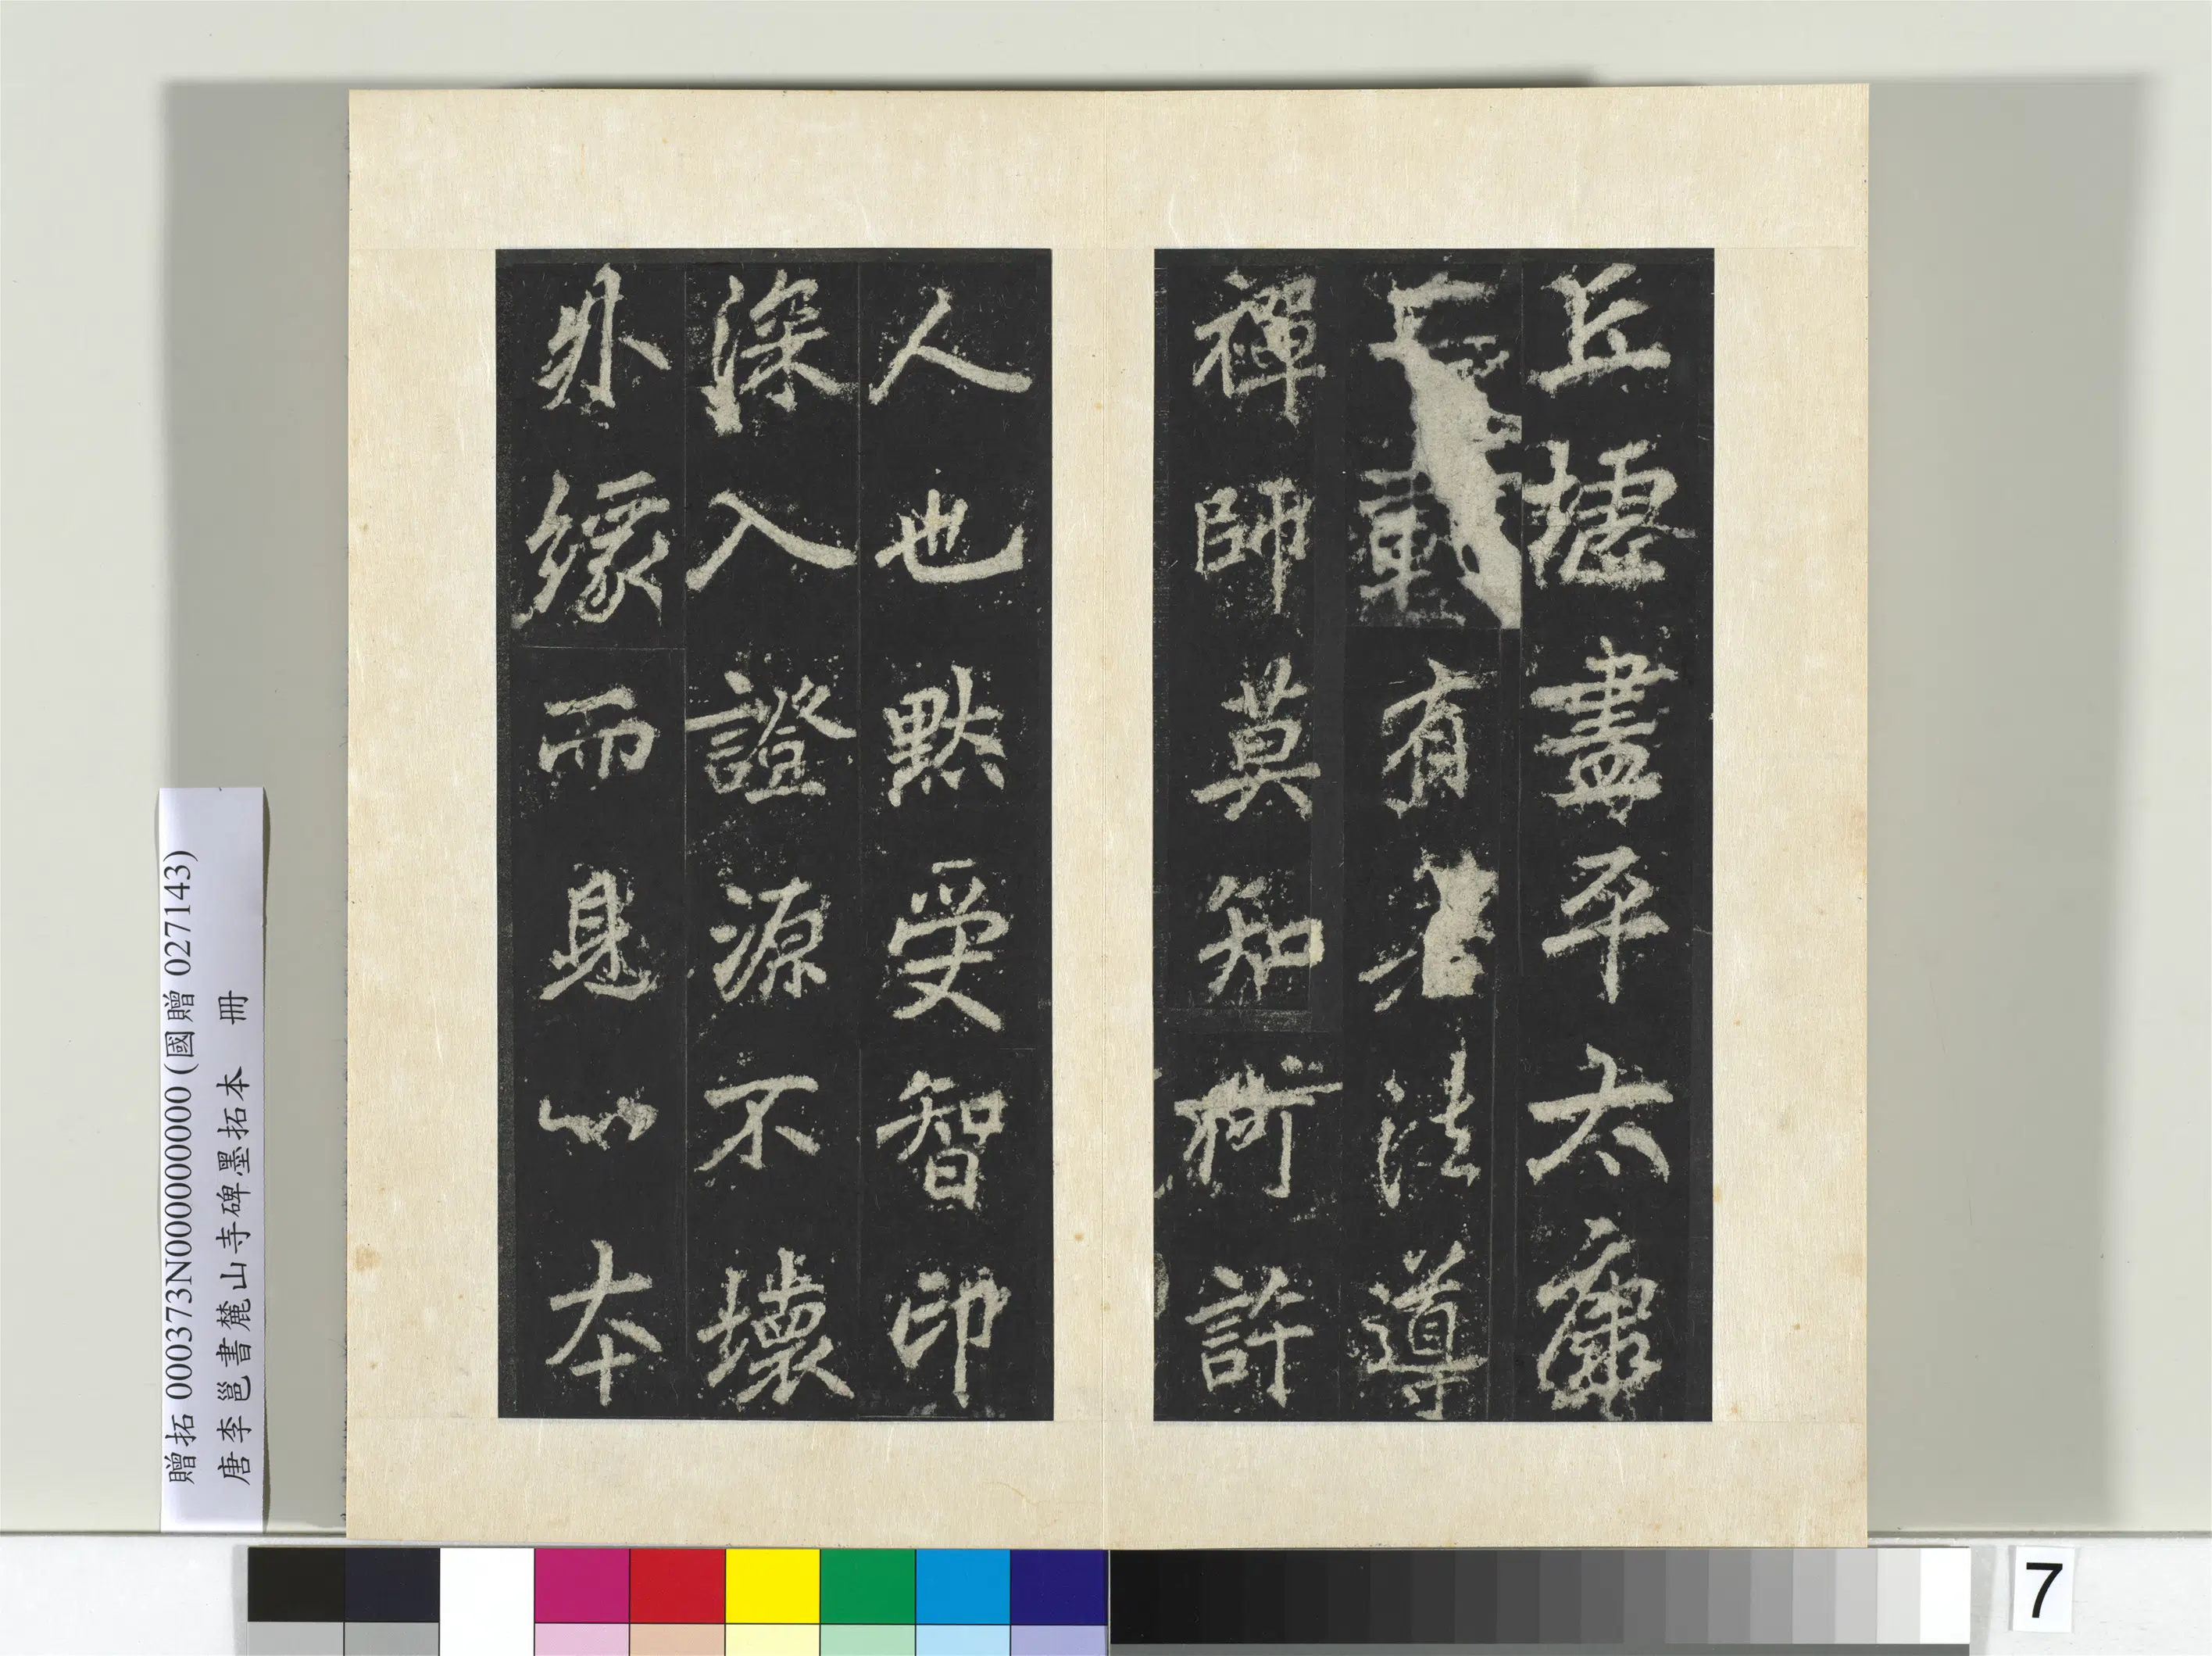 丘壚盡平太康
載有若法導
禪師莫知何許
人也默受智印
深入證源不壞
外緣而見心本
贈拓 000373N000000000 (國贈 027143)
唐李邕書麓山寺碑墨拓本 冊
7